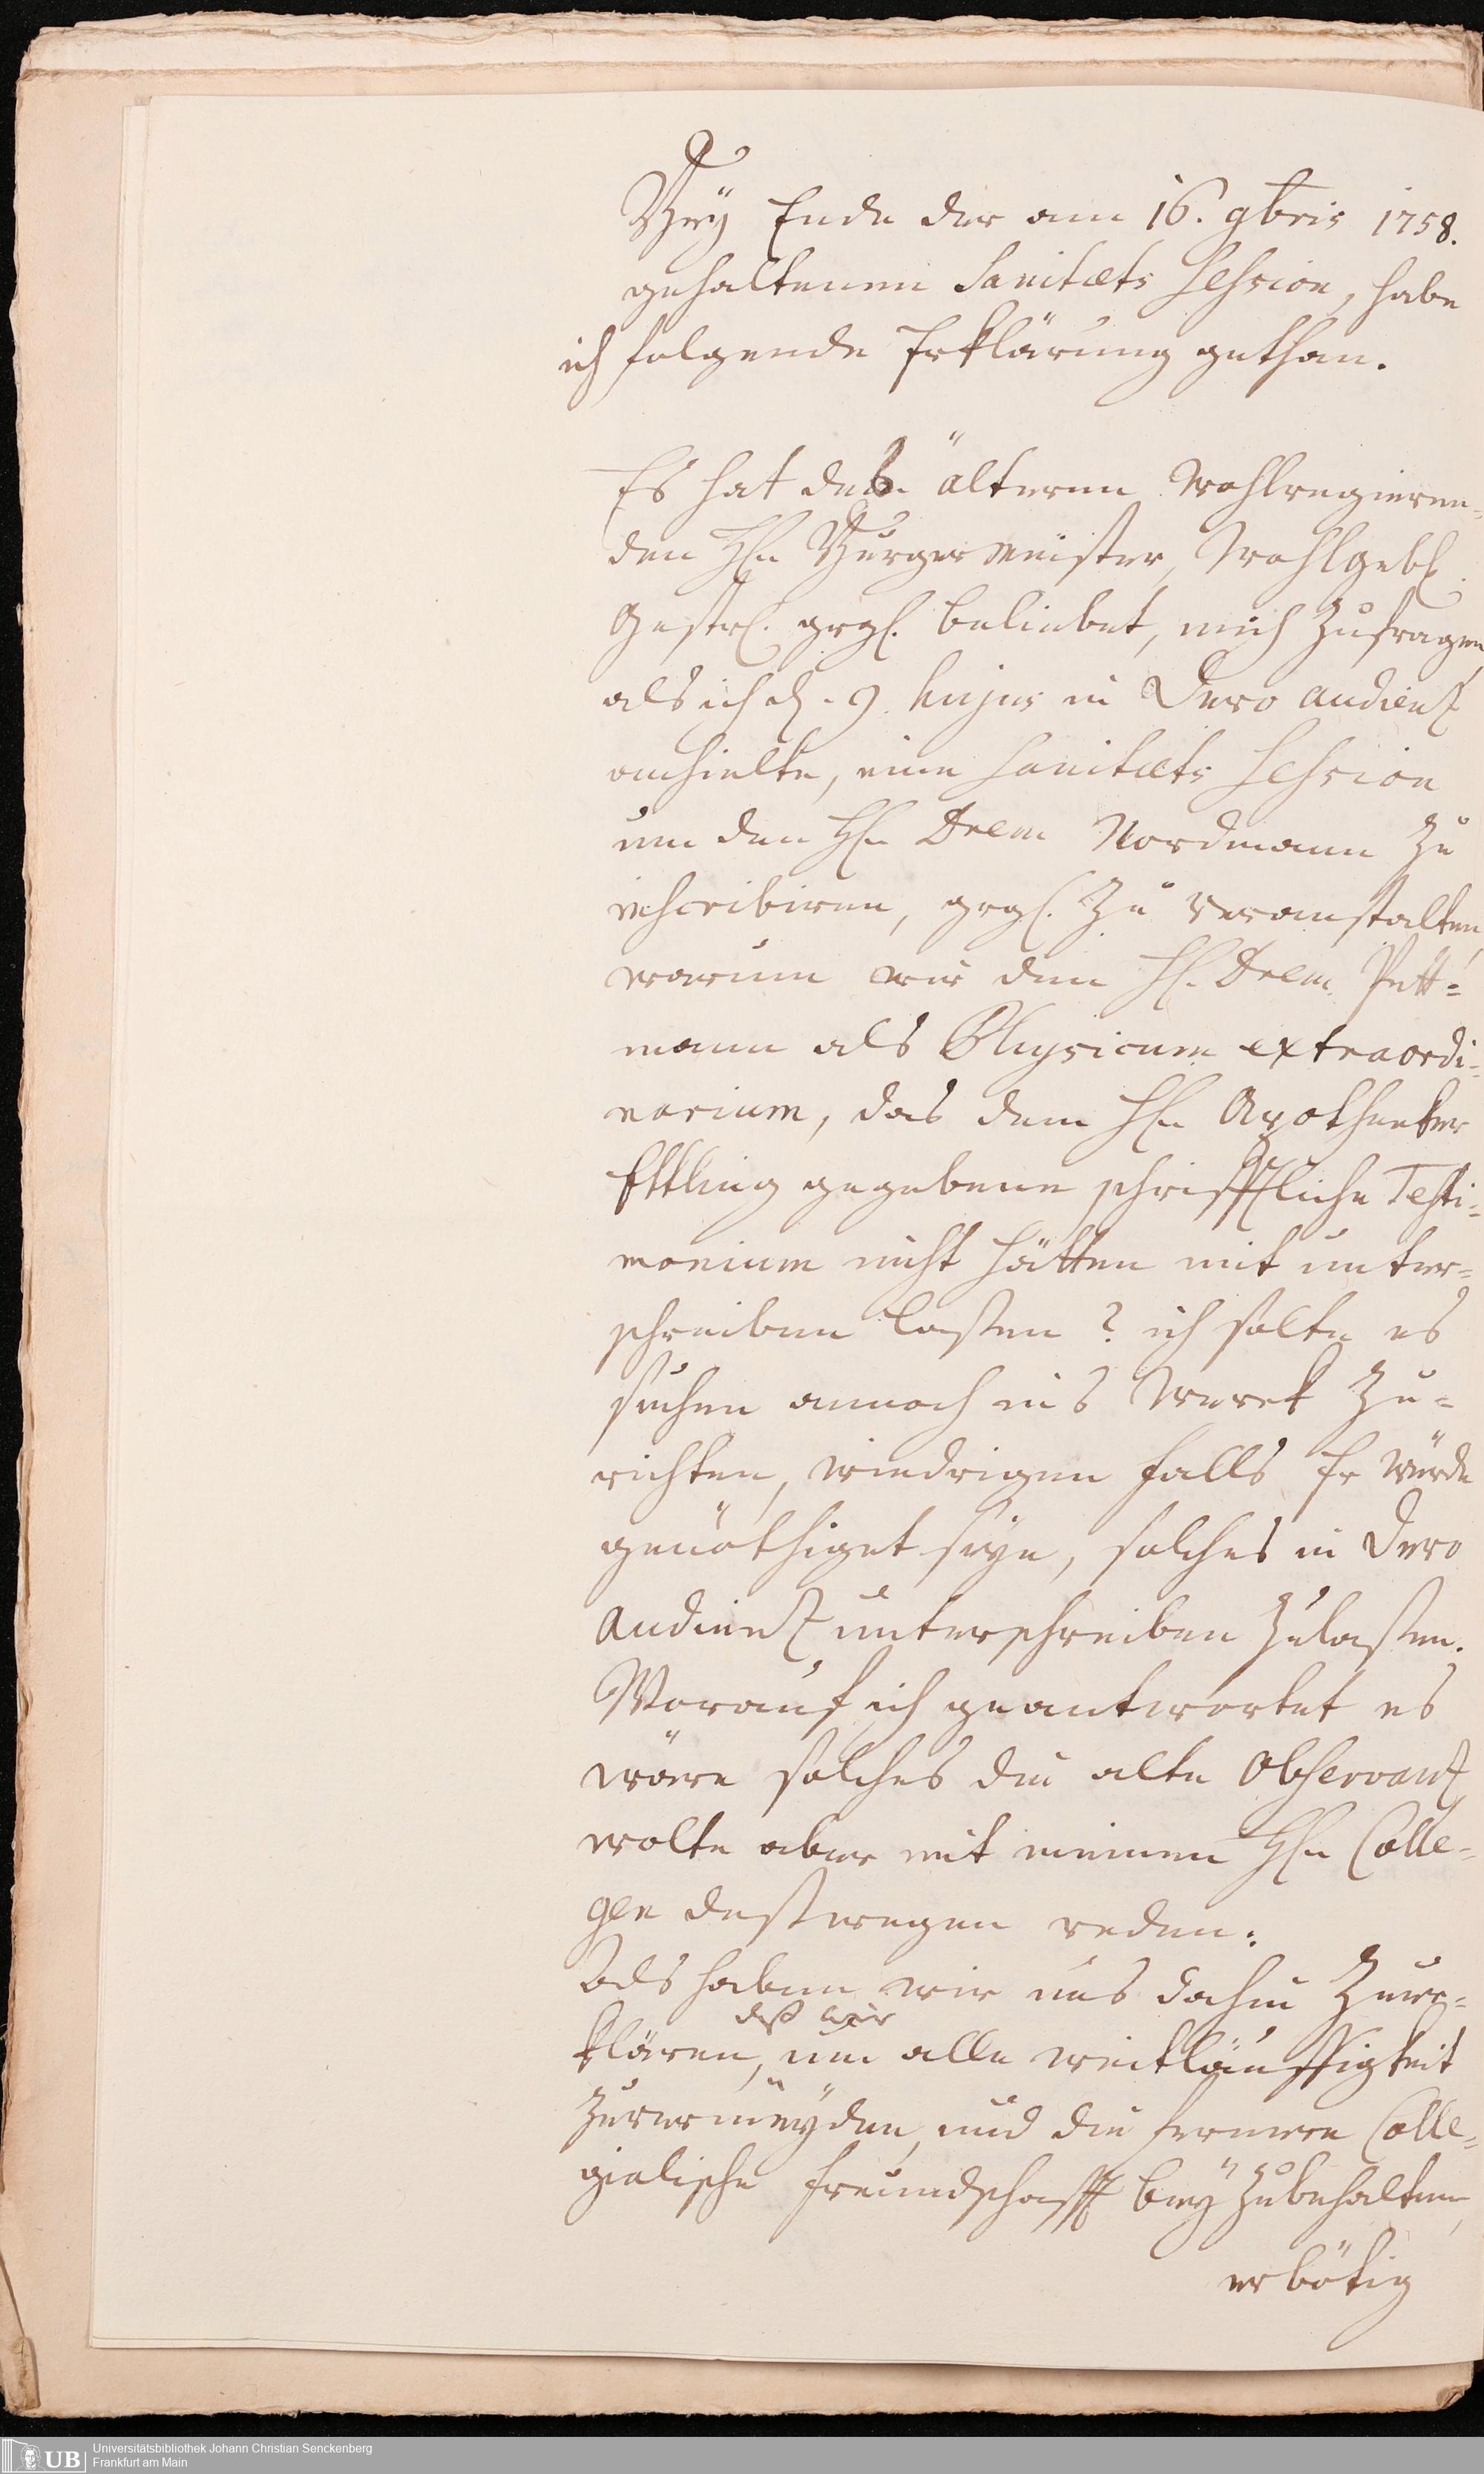 Bey Ende der am 16. 9bris 1758.
gehaltenen Sanitæts Session, habe
ich folgende Erklärung gethan.
Es hat des älteren Wohlregieren-
den Hn Burgermeister, Wohlgebl.
Gestrl. grgl. beliebet, mich zufragen
als ich d. 9 hujus in Dero audientz
anhielte, eine Sanitæts Session
um den Hn Drem Nordmann zu
inscribiren, grgl. zu veranstalten,
warum wir den H. Drem Pett-
mann als Physicum extraordi-
narium, das dem Hn Apotheker
Ettling gegebene schrifftliche Testi-
monium nicht hätten mit unter-
schreiben laßen? ich solte es
suchen annoch ins Werck zu-
richten, wiedrigen falls Er würde
genöthiget seyn, solches in Dero
Audientz unterschreiben zulaßen.
Worauf ich geantwortet es
wäre solches die alte Observantz
wolte aber mit meinen Hn Colle-
gen deßwegen reden.
Als haben wir uns dahin zuer-
daß wir
klären, um alle weitläuffigkeit
zuvermeyden, und die fernere Colle-
gialische freundschafft bey zubehalten,
erbötig
UB
Universitätsbibliothek Johann Christian Senckenberg
Frankfurt am Main